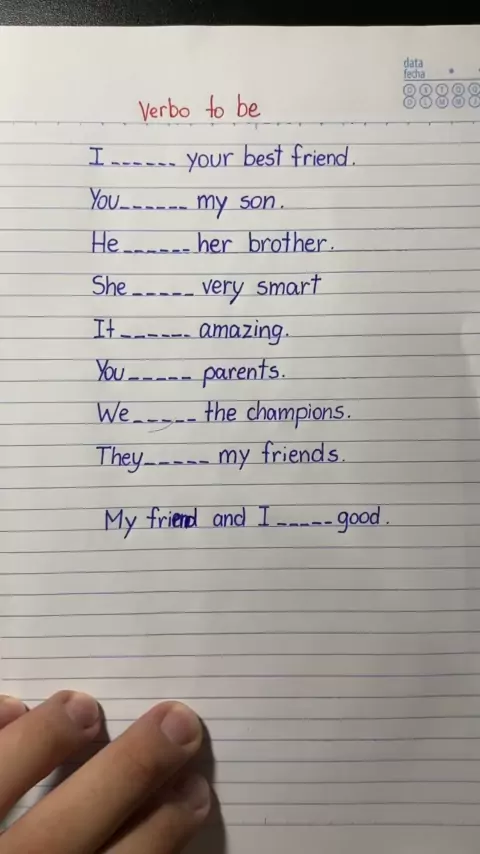 data
fecha
D S T Q Q
D L M M J
Verbo to be
I ------ your best friend.
You ------ my son.
He ------ her brother.
She ----- very smart
It ------ amazing.
You ----- parents.
We ----- the champions.
They ----- my friends.
My friend and I ----- good.